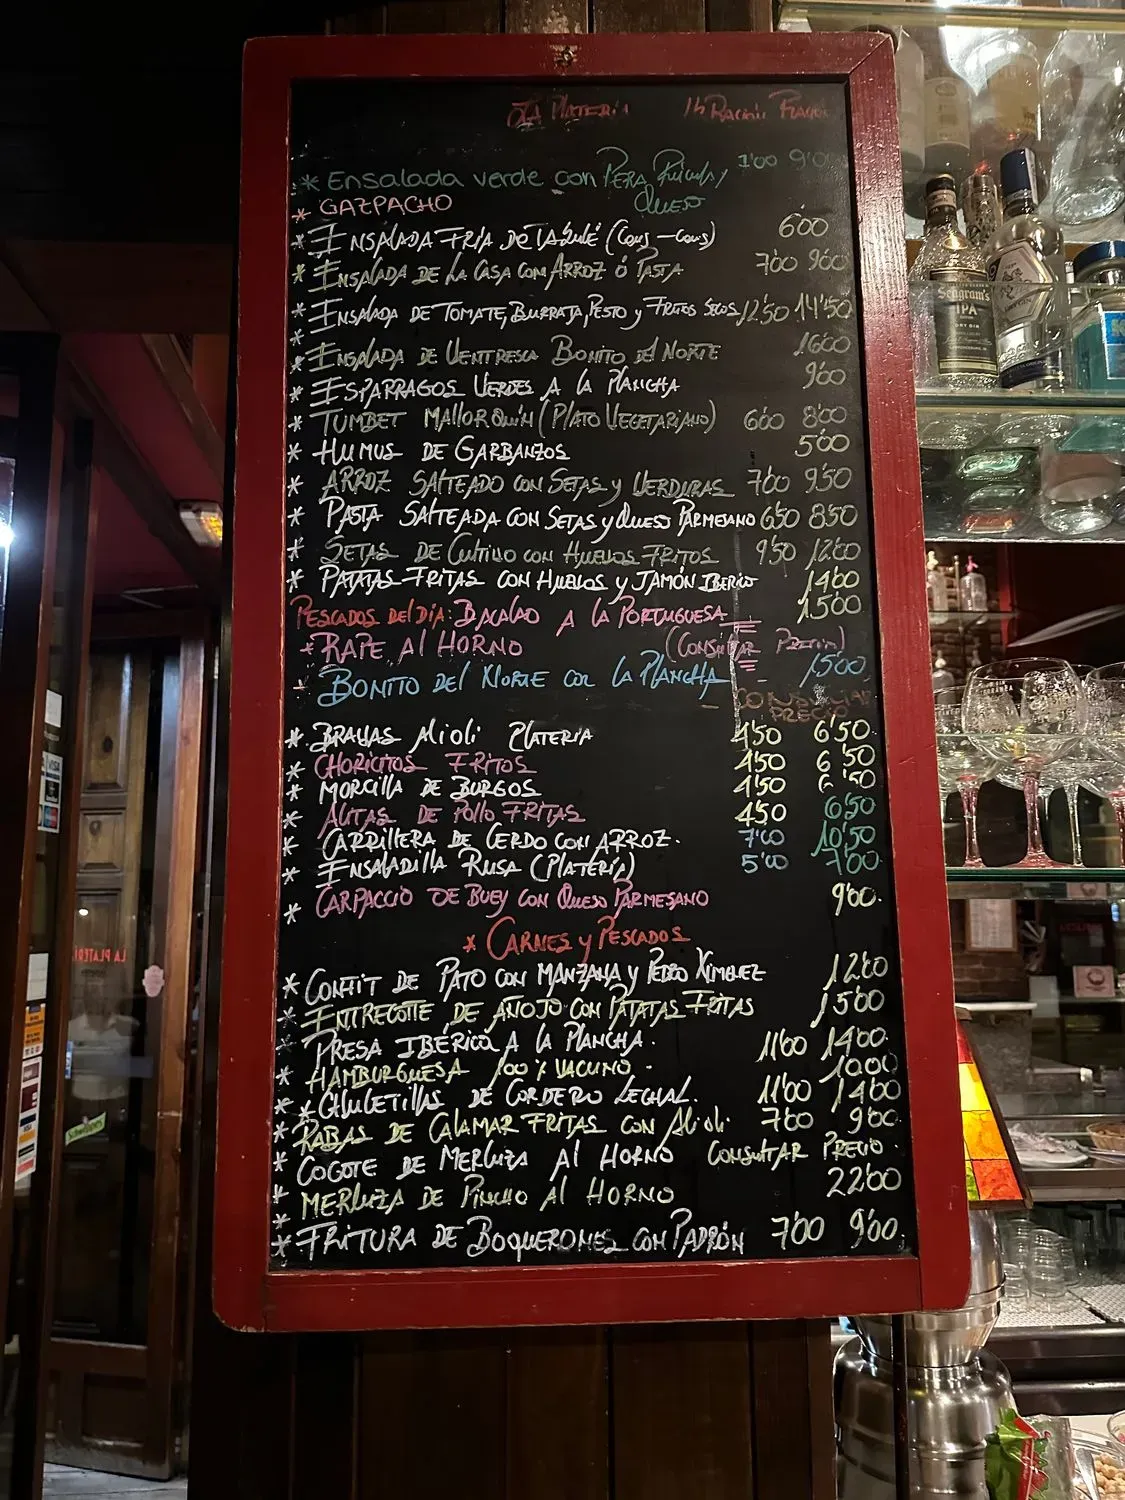 LA PLATERIA ½ RACIÓN RACIÓN
* Ensalada verde con PERA, 7'00 9'00
QUESO
* GAZPACHO
* ENSALADA FRÍA DE TABULÉ (Cous-Cous) 6'00
* ENSALADA DE LA CASA CON ARROZ Ó PASTA 7'00 9'00
* ENSALADA DE TOMATE, BURRATA, PESTO y FRUTOS SECOS 12'50 14'50
*
* ENSALADA DE VENTRESCA BONITO del NORTE 16'00
* ESPARRAGOS VERDES A LA PLANCHA 9'00
* TUMBET MALLORQUÍN (PLATO VEGETARIANO) 6'00 8'00
* HUMUS DE GARBANZOS 5'00
* ARROZ SALTEADO CON SETAS y VERDURAS 7'00 9'50
* PASTA SALTEADA CON SETAS y QUESO PARMESANO 6'50 8'50
* SETAS DE CULTIVO CON HUEVOS FRITOS 9'50 12'00
* PATATAS FRITAS CON HUEVOS y JAMÓN IBERICO 14'00
PESCADOS DEL DÍA: BACALAO A LA PORTUGUESA 15'00
* RAPE Al HORNO (CONSULTAR PRECIO)
BONITO DEL NORTE COL LA PLANCHA 15'00
CONSULTAR
PRECIO
* BRAVAS Alioli PLATERÍA 4'50 6'50
* CHORICITOS FRITOS 4'50 6'50
* MORCILLA DE BURGOS 4'50 6'50
* ALITAS DE POLLO FRITAS 4'50 6'50
* CARRILLERA DE CERDO CON ARROZ. 7'00 10'50
* ENSALADILLA RUSA (PLATERÍA) 5'00 7'00
* CARPACCIO DE BUEY CON QUESO PARMESANO 9'00.
* CARNES y PESCADOS
* CONFIT DE PATO CON MANZANA y PEDRO XIMENEZ 12'00
* ENTRECOTTE DE AÑOJO CON PATATAS FRITAS 15'00
* PRESA IBÉRICA A LA PLANCHA. 11'00 14'00.
* HAMBURGUESA 100% VACUNO. 10'00
* CHULETILLAS DE CORDERO LECHAL. 11'00 14'00
* RABAS DE CALAMAR FRITAS CON Alioli 7'00 9'00
* COGOTE DE MERLUZA Al HORNO CONSULTAR PRECIO
* MERLUZA DE PINCHO Al HORNO 22'00
* FRITURA DE BOQUERONES CON PADRÓN 7'00 9'00
Seagram's
IPA
DRY GIN
LA PLATERÍA
VISA